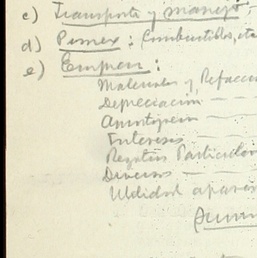 c) Transporte y manejo,
d) Pemex: Combustibles, eta
e) Empresa:
Materiales y Refacci
Depreciación —
Amortización —
Intereses —
Regalías Particular
Diversos —
Utilidad aparen
Suma